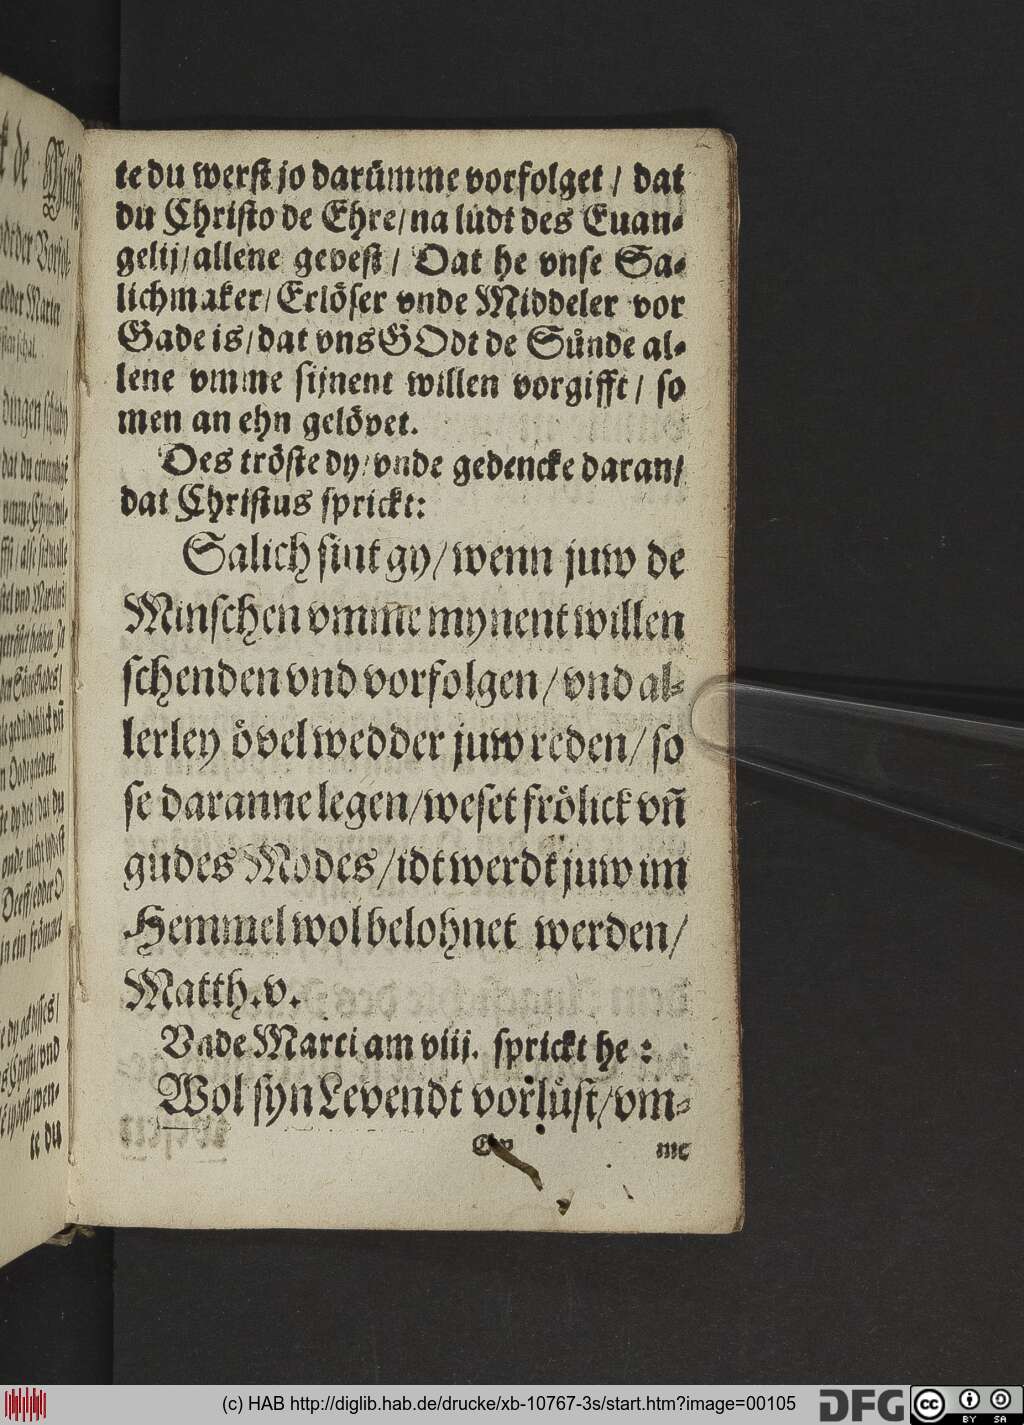 te du werst jo darümme vorfolget / dat
du Christo de Ehre / na lüdt des Euan-
gelij / allene gevest / Dat he vnse Sa-
lichmaker / Erlöser vnde Middeler vor
Gade is / dat vns GOdt de Sünde al-
lene vmme sijnent willen vorgifft / so
men an ehn gelövet.
Des tröste dy / vnde gedencke daran /
dat Christus sprickt:
Salich sint gy / wenn juw de
Minschen vmme mynent willen
schenden vnd vorfolgen / vnd al-
lerley övel wedder juw reden / so
se daranne legen / weset frölick vñ
gudes Modes / idt werdt juw im
Hemmel wol belohnet werden /
Matth. v.
Vnde Marci am viij. sprickt he :
Wol syn Levendt vorlüst / vm-
me
(c) HAB http://diglib.hab.de/drucke/xb-10767-3s/start.htm?image=00105
DFG
cc BY SA